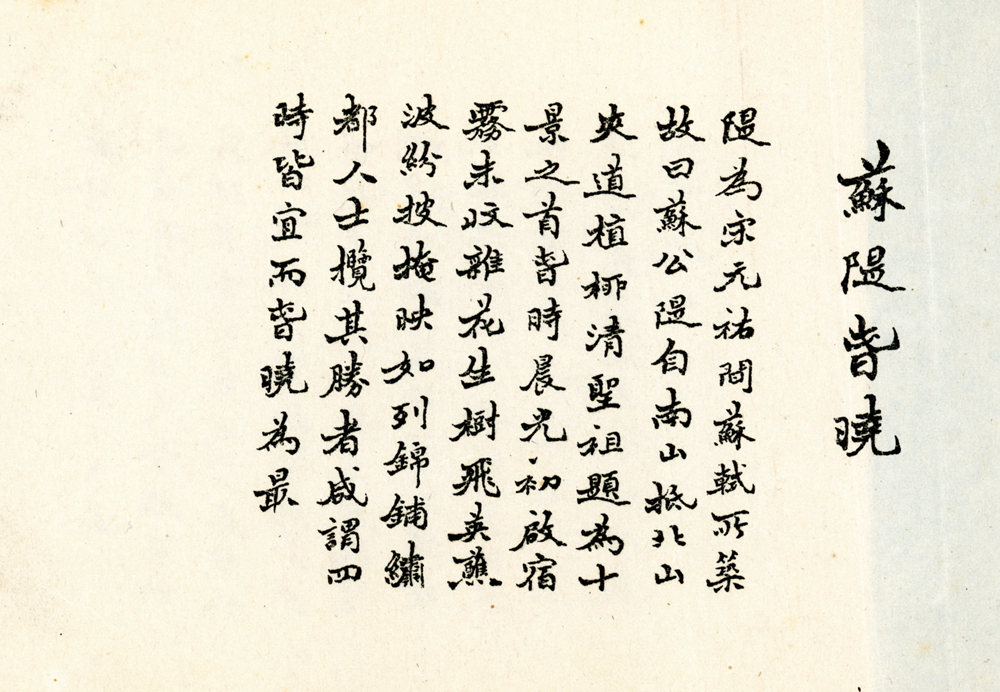 蘇隄旾曉
隄為宋元祐間蘇軾所築
故曰蘇公隄自南山抵北山
夾道植栁清聖祖題為十
景之首旾時晨光初啟宿
霧未收雜花生樹飛英蘸
波紛披掩映如列錦鋪繡
都人士攬其勝者咸謂四
時皆宜而旾曉為最